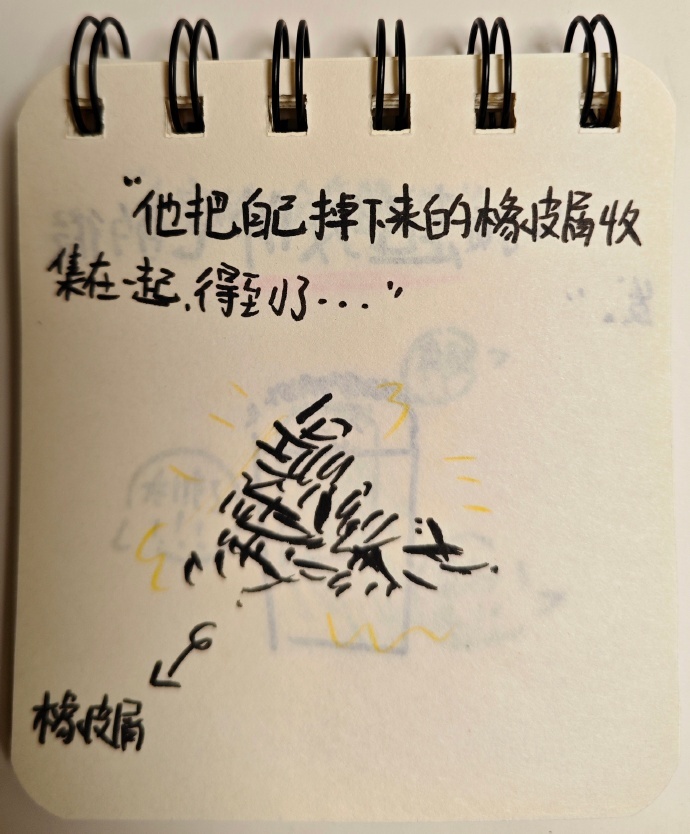 “他把自己掉下来的橡皮屑收
集在一起,得到了...”
橡皮屑